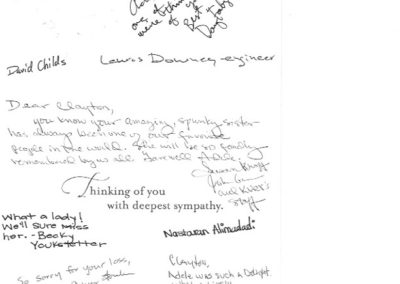 one of
were of
best
David Childs
Lewis Downey-engineer
Dear Clayton,
you know your amazing, spunky sister
has always been one of our favorite
people in the world. She will be so fondly
remembered by us all. Farewell Adele.
and KUER's
staff
Thinking of you
with deepest sympathy.
What a lady!
We'll sure miss
her. - Becky
Youkstetter
Nastaran Alimadadi
So sorry for your loss,
Clayton,
Adele was such a Delight